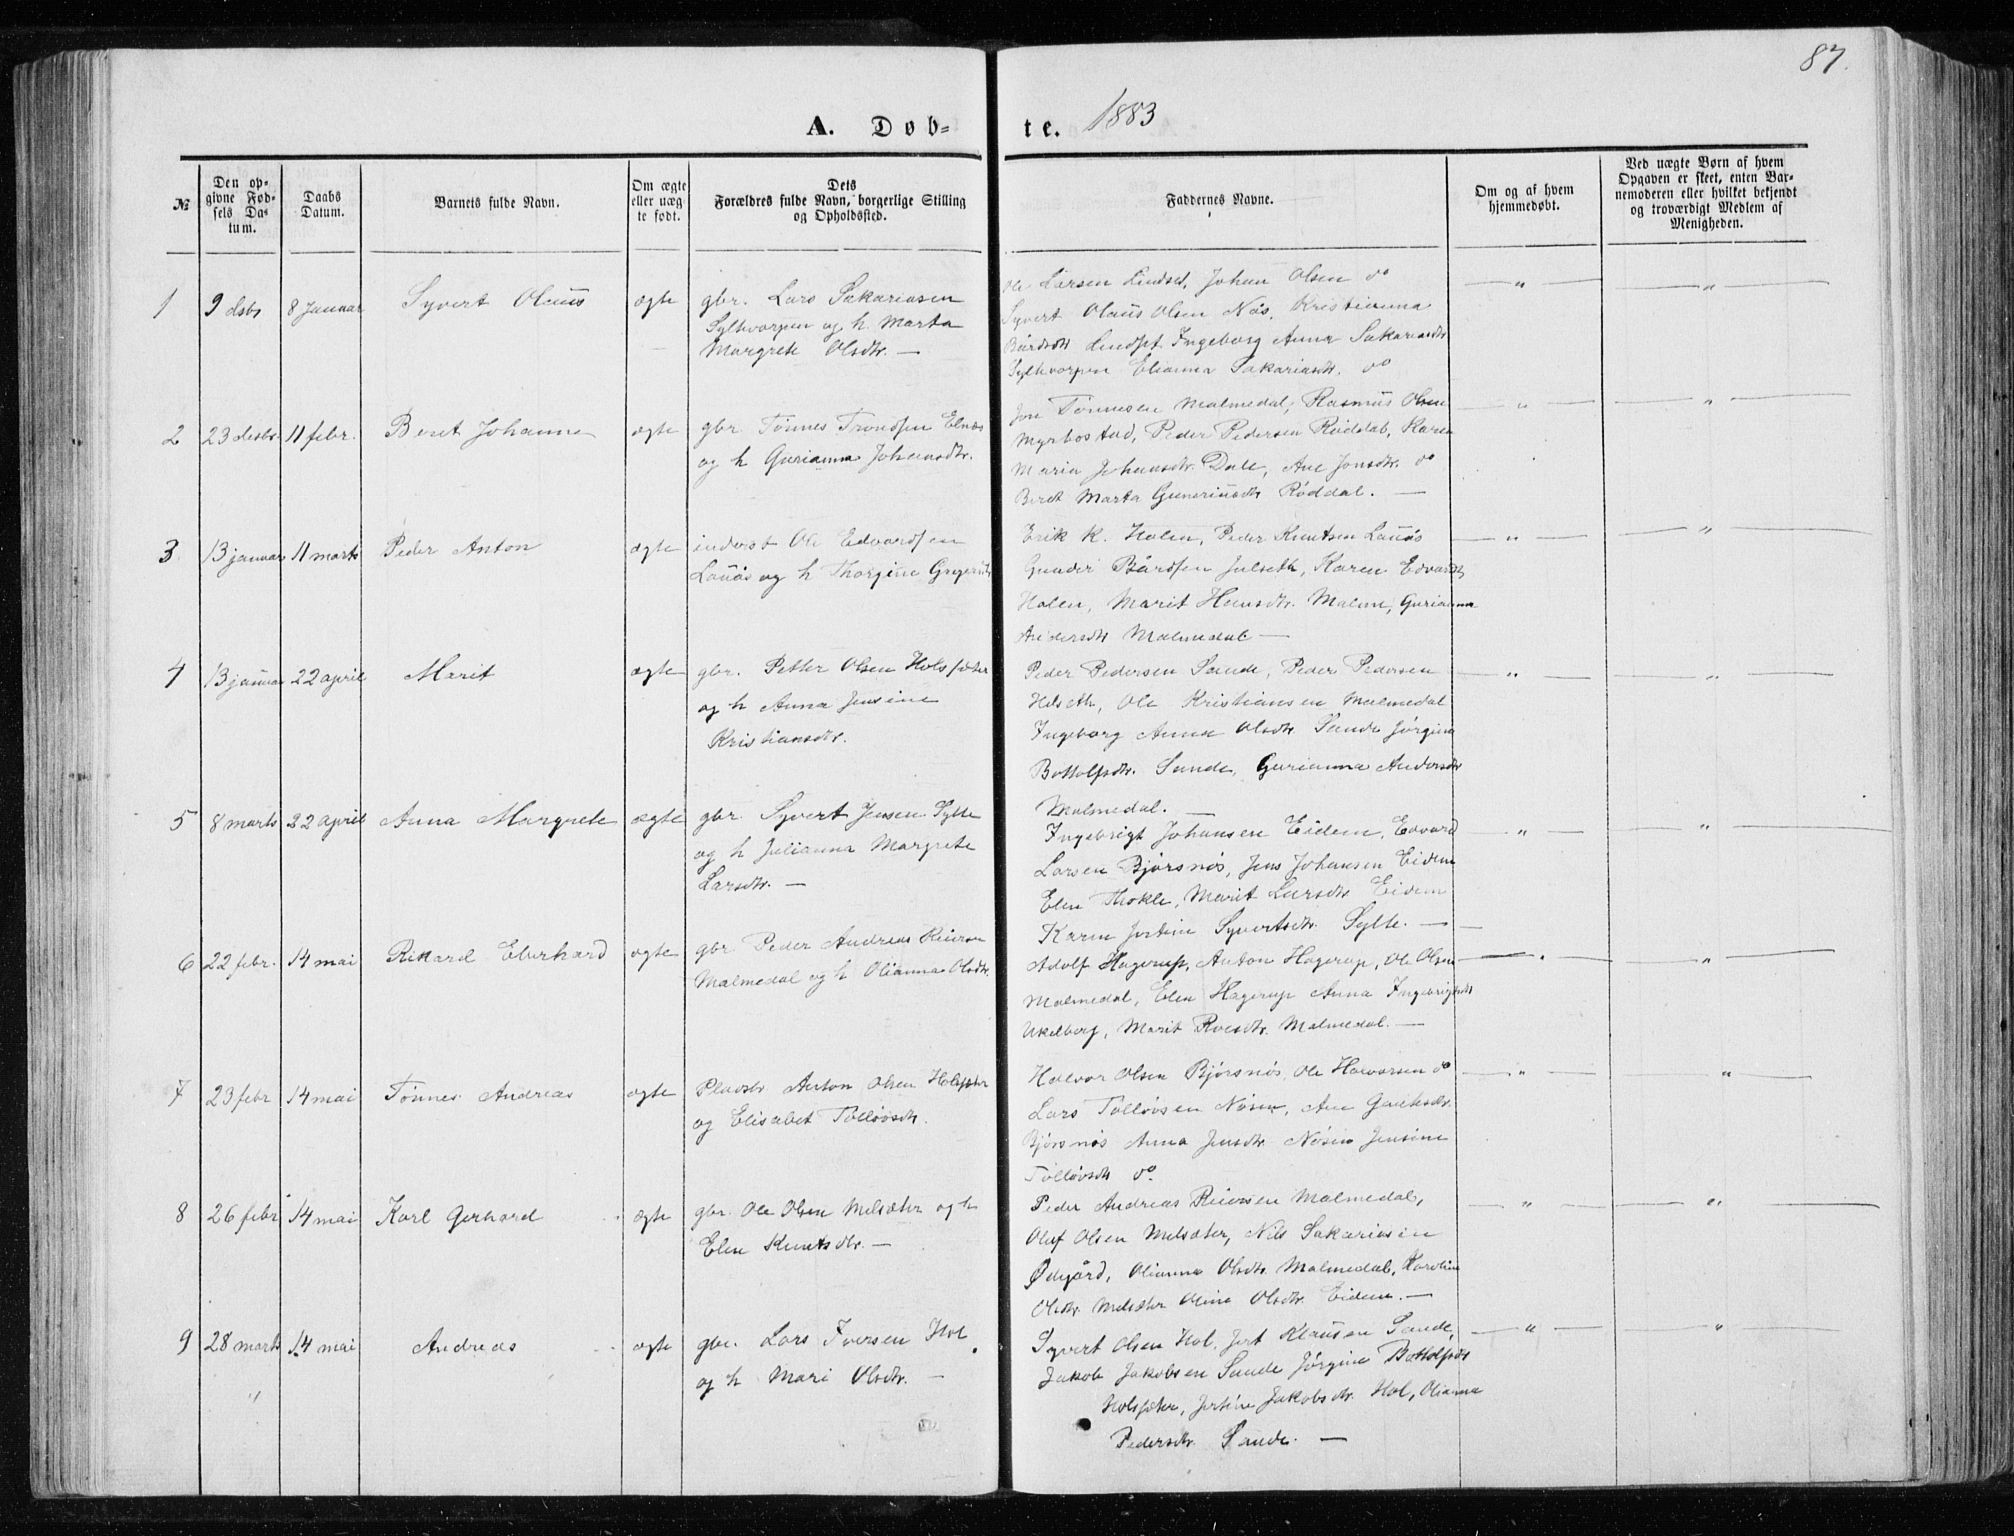 87.
A. Døb-
te. 1883
№
Den op-
givne Fød-
sels Da-
tum.
Daabs
Datum.
Barnets fulde Navn.
Om ægte
eller uæg-
te født.
Dets
Forældres fulde Navn, borgerlige Stilling
og Opholdssted.
Faddernes Navne.
Om og af hvem
hjemmedøbt.
Ved uægte Børn af hvem
Opgaven er skeet, enten Bar-
nemoderen eller hvilket bekjendt
og troværdigt Medlem af
Menigheden.
1 9 dsbr 8 Januar Syvert Olaus ægte
gbr. Lars Sakariasen
Sylhvarpen og h. Marta
Margrete Olsdtr. —
Ole Larsen Lindset, Johan Olsen do
Syvert Olaus Olsen Nås, Kristianna
Bårdsdtr Lindset Ingeborg Anna Sakariasdtr
Sylhvarpen Elianna Sakariasdtr. do
2 23 desbr 11 febr. Beret Johanna ægte
gbr. Tønnes Trondsen Elnæs
og h Gurianna Johansdtr.
Jon Tønnesen Malmedal, Rasmus Olsen
Myrbostad, Peder Pedersen Røddal, Karen
Maria Johansdtr. Dale, Ane Jonsdtr. do
Beret Marta Gunariusdtr Røddal. —
3 13 januar 11 marts Peder Anton ægte
inderst Ole Edvardsen
Lauås og h Thorgine
Erik K. Holen, Peder Knutsen Lauås
Gunder Bårdsen Julseth, Karen Edvardsdtr
Holen, Marit Hansdtr. Malme, Gurianna
Andersdtr Malmedal —
4 13 januar 22 april Marit ægte
gbr. Petter Olsen Holsæter
og h Anna Jensine
Kristiansdtr.
Peder Pedersen Sande, Peder Pedersen
Helseth, Ole Kristiansen Malmedal
Ingeborg Anna Olsdtr Sande Jørgine
Bottolfsdtr. Sande, Gurianna Andersdtr
Malmedal. —
5 8 marts 22 april Anna Margrete ægte
gbr. Syvert Jensen Sylte
og h Julianna Margrete
Larsdtr. —
Ingebrigt Johansen Eidem, Edvard
Larsen Bjørsnøs, Jens Johansen Eidem
Elen Thokle, Marit Larsdtr Eidem
Karen Jertine Syvertsdtr. Sylte. —
6 22 febr. 14 mai Rikard Eberhard ægte
gbr Peder Andreas Reiersen
Malmedal og h Olianna Olsdtr.
Adolf Hagerup, Anton Hagerup, Ole Olsen
Malmedal, Elen Hagerup Anna Ingebrigtsdtr
Ukelberg, Marit Roesdtr. Malmedal. —
7 23 febr 14 mai Tønnes Andreas ægte
Pladsbr Anton Olsen Holsæter
og Elisabet Tolløvsdtr.
Halvor Olsen Bjørsnøs, Ole Halvorsen do
Lars Tolløvsen Nøsen, Ane
Bjørsnøs Anna Jensdtr Nøsen Jensine
Tolløvsdtr do.
8 26 febr 14 mai Karl Gerhard ægte
gbr. Ole Olsen Melsæter og h
Elen Knutsdtr. —
Peder Andreas Reiersen Malmedal,
Oluf Olsen Melsæter, Nils Sakariasen
Ødegård, Olianna Olsdtr. Malmedal, Karoline
Olsdtr. Melsæter Oline Olsdtr. Eidem. —
9 28 marts 14 mai Andreas ægte
gbr. Lars Iversen Hol
og h Mari Olsdtr. —
Syvert Olsen Hol, Jert Klausen Sande,
Jakob Jakobsen Sande Jørgine Bottolfsdtr
Holsæter, Jertine Jakobsdtr. Hol, Olianna
Pedersdtr Sande. —